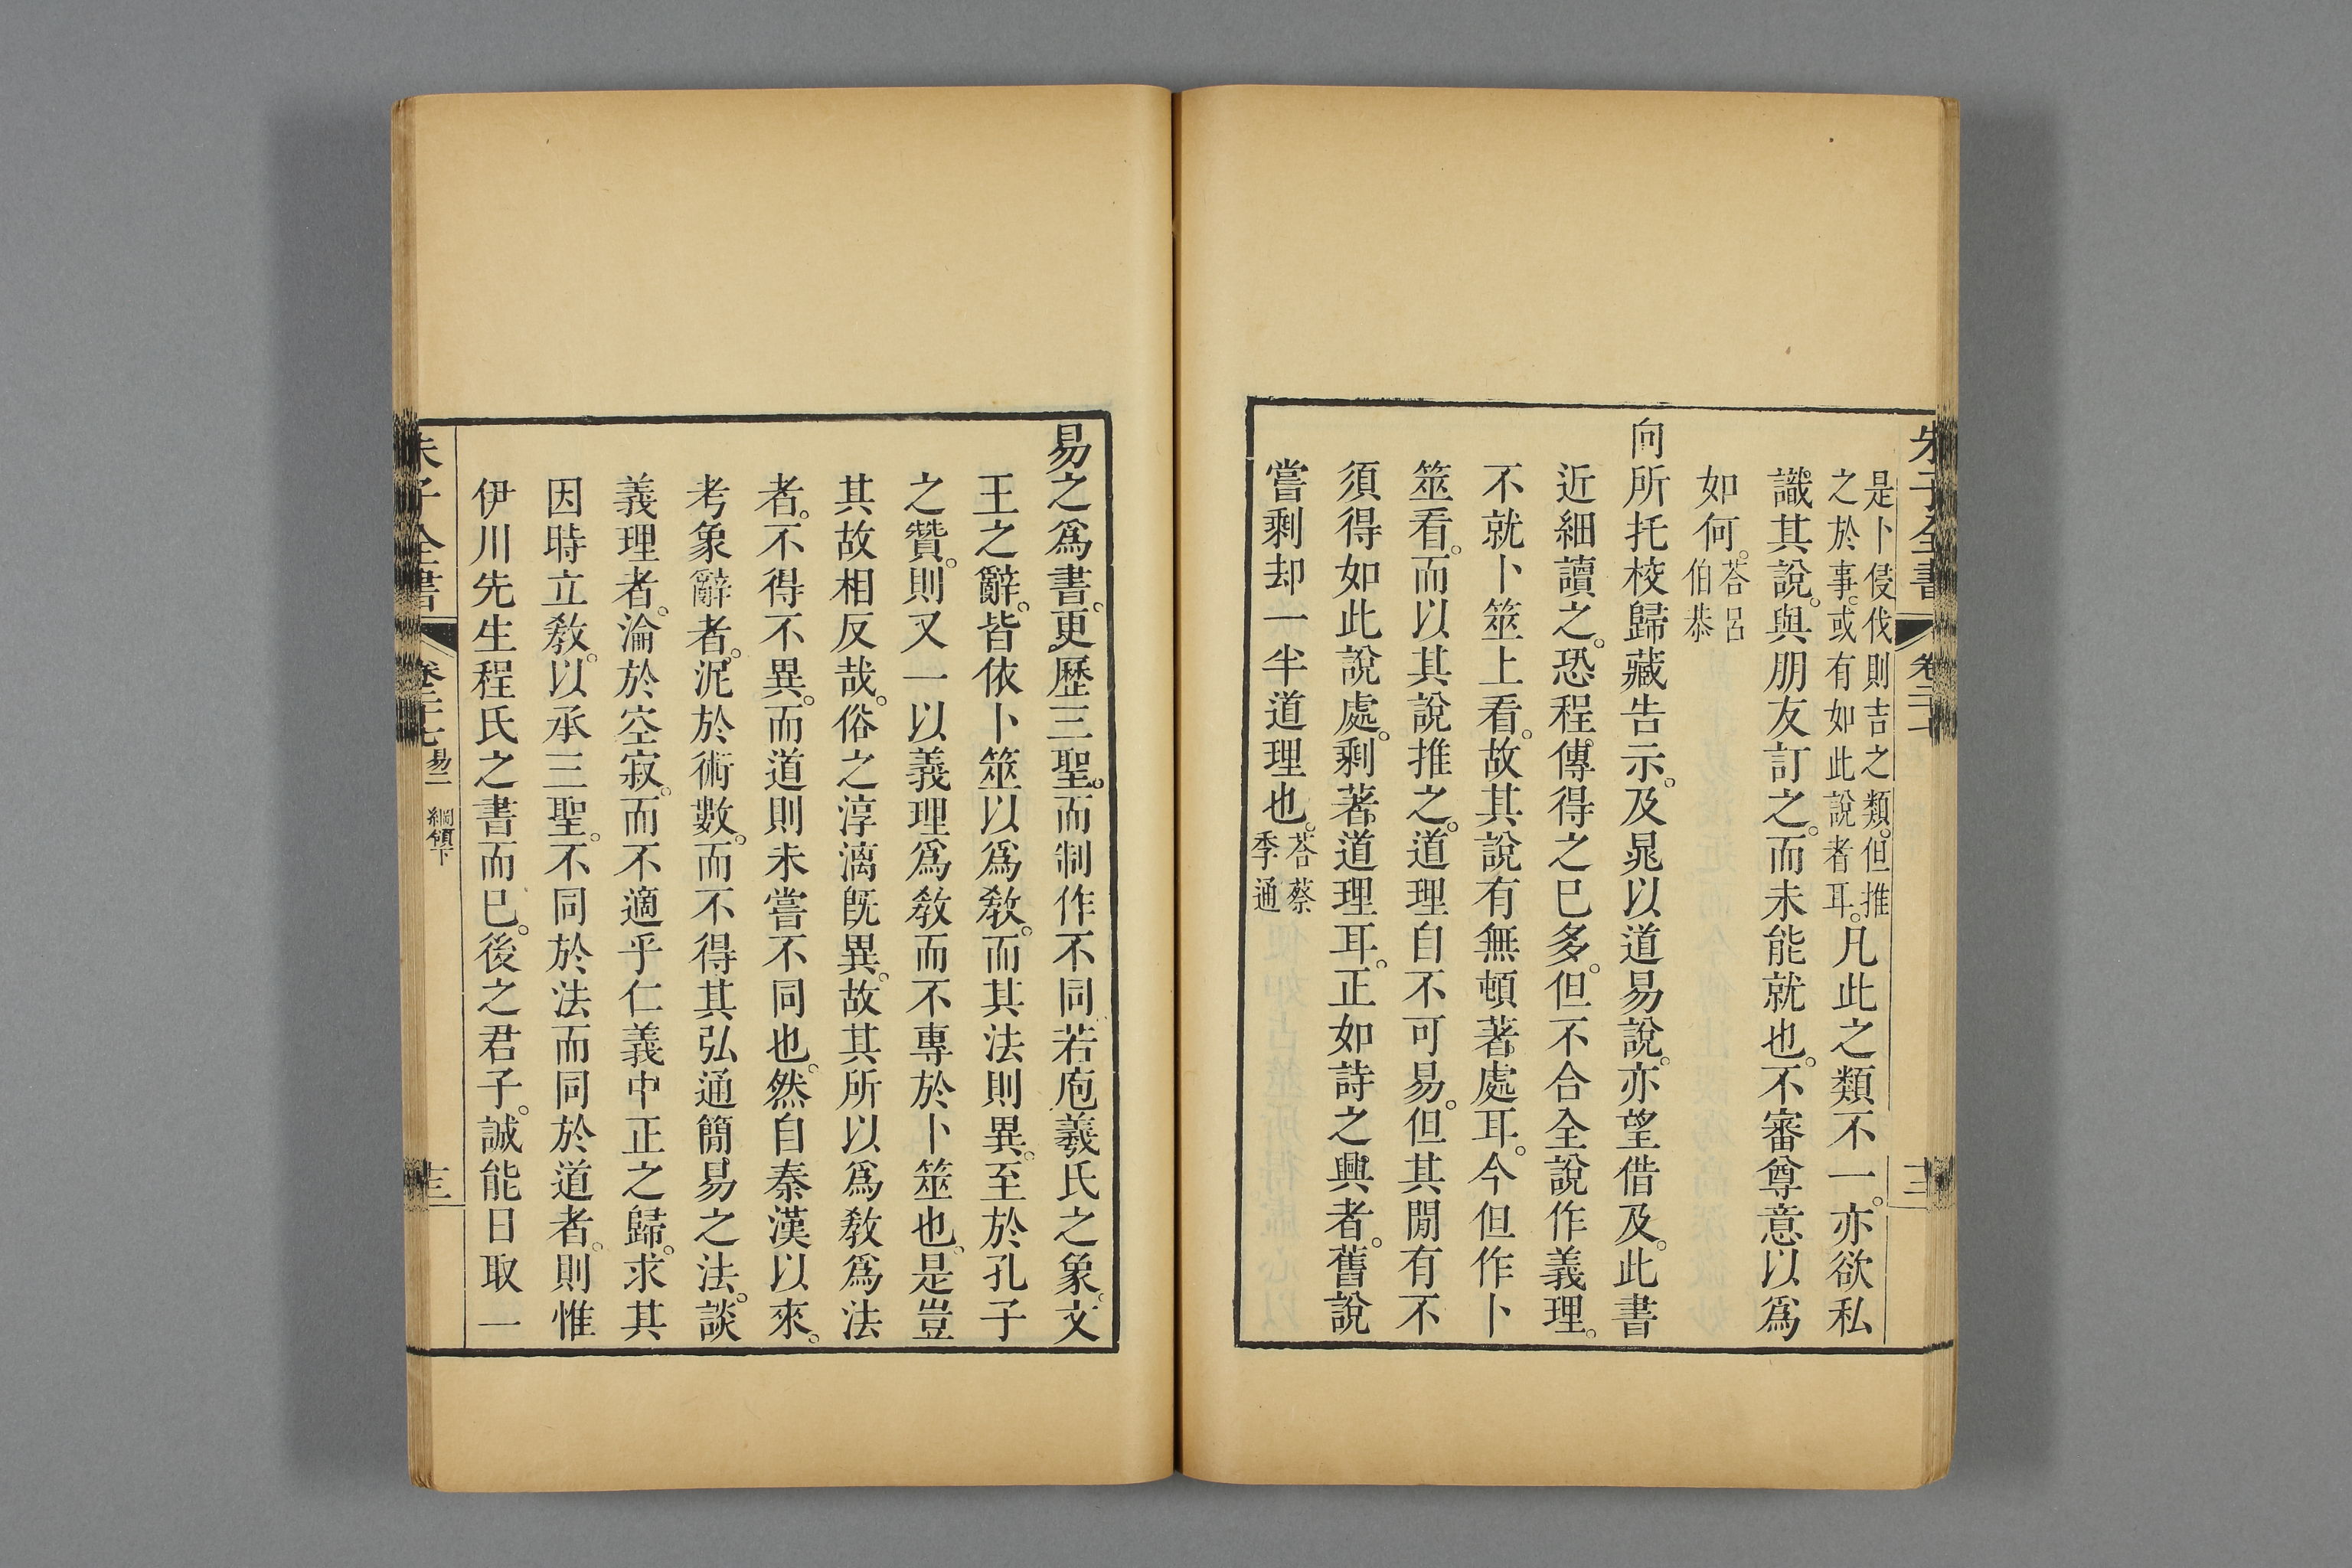 是卜侵伐則吉之類。但推
之於事。或有如此說者耳。凡此之類不一。亦欲私
識其說。與朋友訂之。而未能就也。不審尊意以爲
如何。荅呂伯恭
向所托校歸藏告示。及晁以道易說。亦望借及。此書
近細讀之。恐程傳得之已多。但不合全說作義理。
不就卜筮上看。故其說有無頓著處耳。今但作卜
筮看。而以其說推之。道理自不可易。但其閒有不
須得如此說處。剩著道理耳。正如詩之興者。舊說
嘗剩却一半道理也。荅蔡季通
易之爲書。更歷三聖。而制作不同。若庖羲氏之象。文
王之辭。皆依卜筮以爲教。而其法則異。至於孔子
之贊。則又一以義理爲教而不專於卜筮也。是豈
其故相反哉。俗之淳漓旣異。故其所以爲教爲法
者。不得不異。而道則未嘗不同也。然自秦漢以來。
考象辭者。泥於術數。而不得其弘通簡易之法。談
義理者。淪於空寂。而不適乎仁義中正之歸。求其
因時立教。以承三聖。不同於法而同於道者。則惟
伊川先生程氏之書而已。後之君子。誠能日取一
朱子全書 卷二十七 易二 綱領下 十三